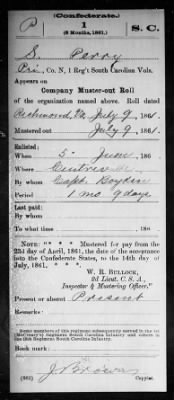 (Confederate.)
P 1 S. C.
(6 Months, 1861.)
S. Perry
Pvt., Co. N, 1 Reg't South Carolina Vols.
Appears on
Company Muster-out Roll
of the organization named above. Roll dated
Richmond, Va July 9, 1861.
Mustered out July 9, 1861.
Enlisted:
When 5 June, 186 .
Where Centreville
By whom Capt. Boykin
Period 1 mo 9 days
Last paid:
By whom
To what time , 186 .
NOTE: * * * Mustered for pay from the
23d day of April, 1861, the date of the acceptance
into the Confederate States, to the 14th day of
July, 1861. * * *
W. R. BULLOCK,
2d Lieut. C. S. A.,
Inspector & Mustering Officer."
Present or absent Present
Remarks:
Some members of this regiment subsequently served in the 1st
South Carolina Infantry.
Book mark:
(661) J Brown
Copyist.